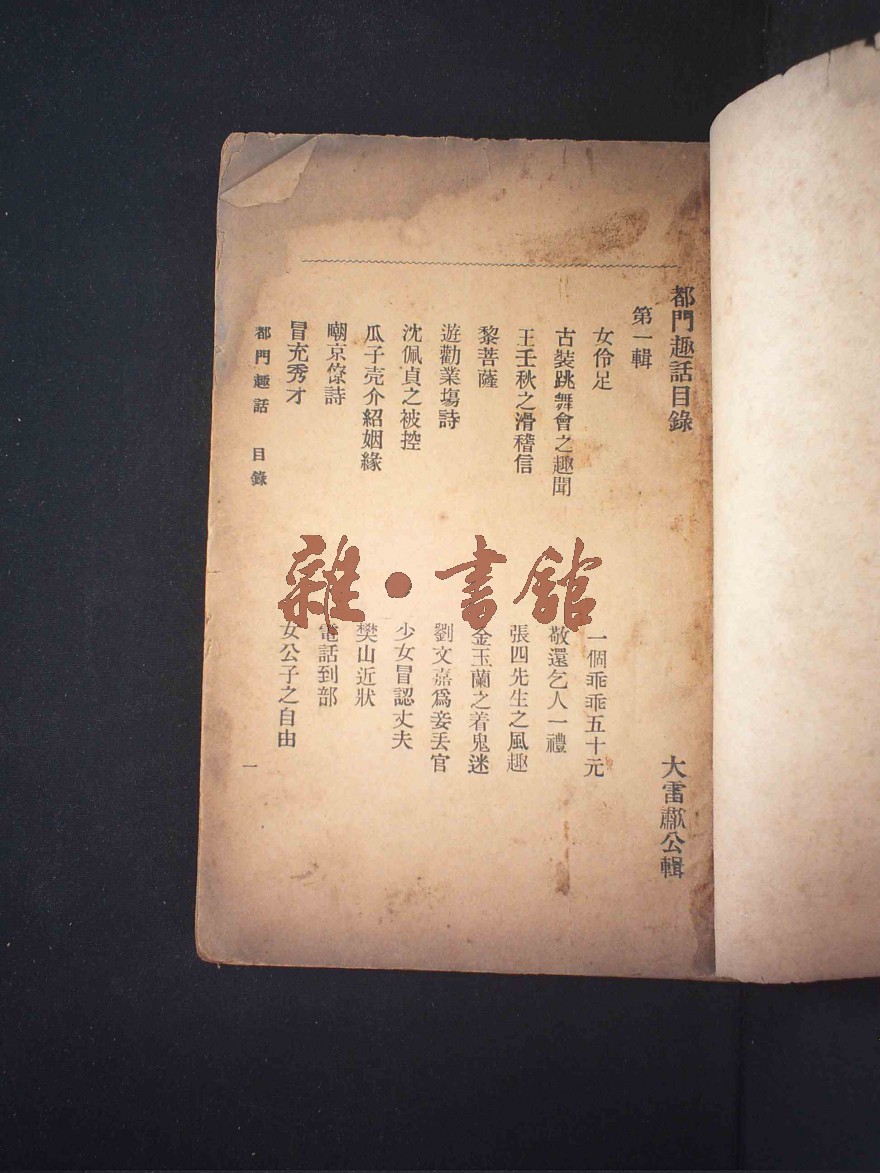 都門趣話目錄
大雷歗公輯
第一輯
女伶足
一個乖乖五十元
古装跳舞會之趣聞
敬還乞人一禮
王壬秋之滑稽信
張四先生之風趣
黎菩薩
金玉蘭之着鬼迷
遊勸業塲詩
劉文嘉爲妾丟官
沈佩貞之被控
少女冒認丈夫
瓜子売介紹姻緣
樊山近狀
嘲京僚詩
電話到部
冒充秀才
女公子之自由
都門趣話 目錄
一
雜·書館